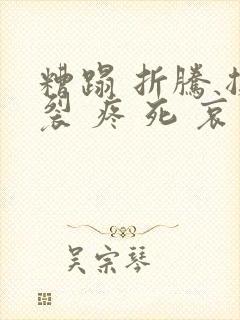 糟蹋 折騰
裂 疼 死 哀
吴宗琴